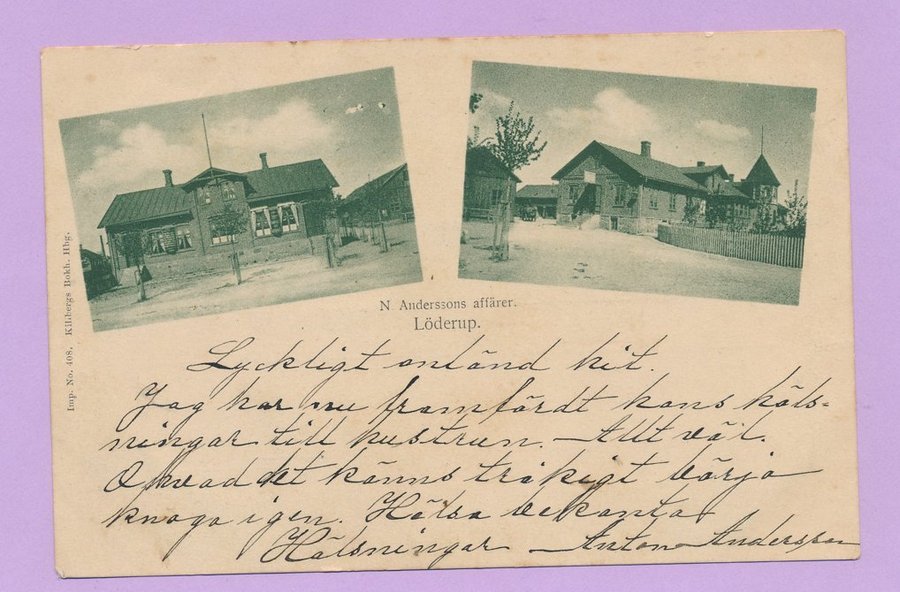 N. Anderssons affärer.
Löderup.
Imp. No. 408. Killbergs Bokh. Hbg.
Lyckligt anländ hit.
Jag har nu framfördt hans häls-
ningar till hustrun. Allt väl.
O hvad det känns tråkigt börja
knoga igen. Hälsa bekanta
Hälsningar Anton Andersson